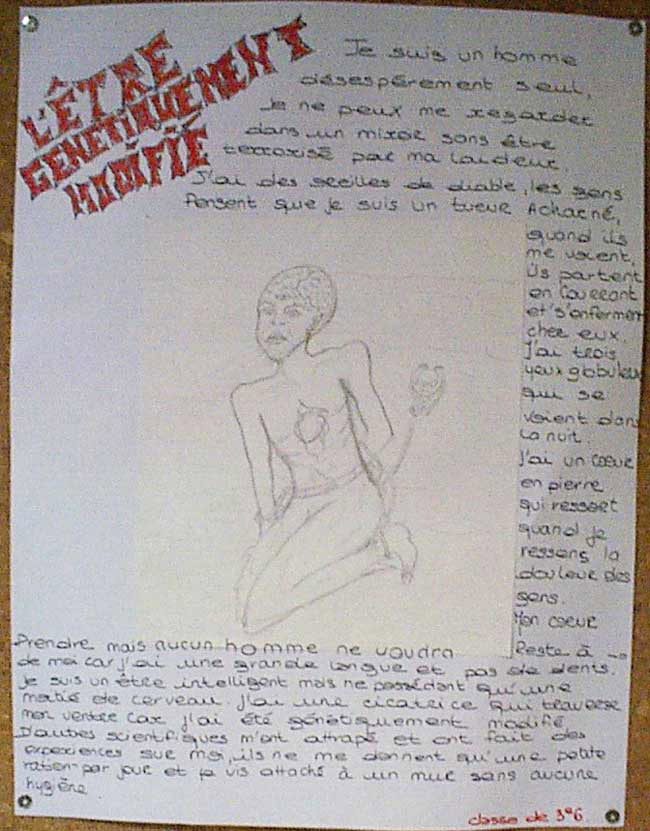 L'ÊTRE
GÉNÉTIQUEMENT
MODIFIÉ
Je suis un homme
désespérement seul,
Je ne peux me regarder
dans un miroir sans être
terrorisé par ma laideur.
J'ai des oreilles de diable, les gens
Pensent que je suis un tueur Acharné,
quand ils
me voient,
ils partent
en courrant
et s'enferment
chez eux.
J'ai trois
yeux globuleux
qui se
voient dans
la nuit.
J'ai un coeur
en pierre
qui ressort
quand je
ressens la
douleur des
gens.
Mon coeur
Reste à
Prendre mais aucun homme ne voudra
de moi car j'ai une grande langue et pas de dents.
Je suis un être intelligent mais ne possédant qu'une
moitié de cerveau. J'ai une cicatrice qui traverse
mon ventre car j'ai été génétiquement modifié
D'autres scientifiques m'ont attrapé et ont fait des
expériences sur moi, ils ne me donnent qu'une petite
ration par jour et je vis attaché à un mur sans aucune
hygiène.
classe de 3°6